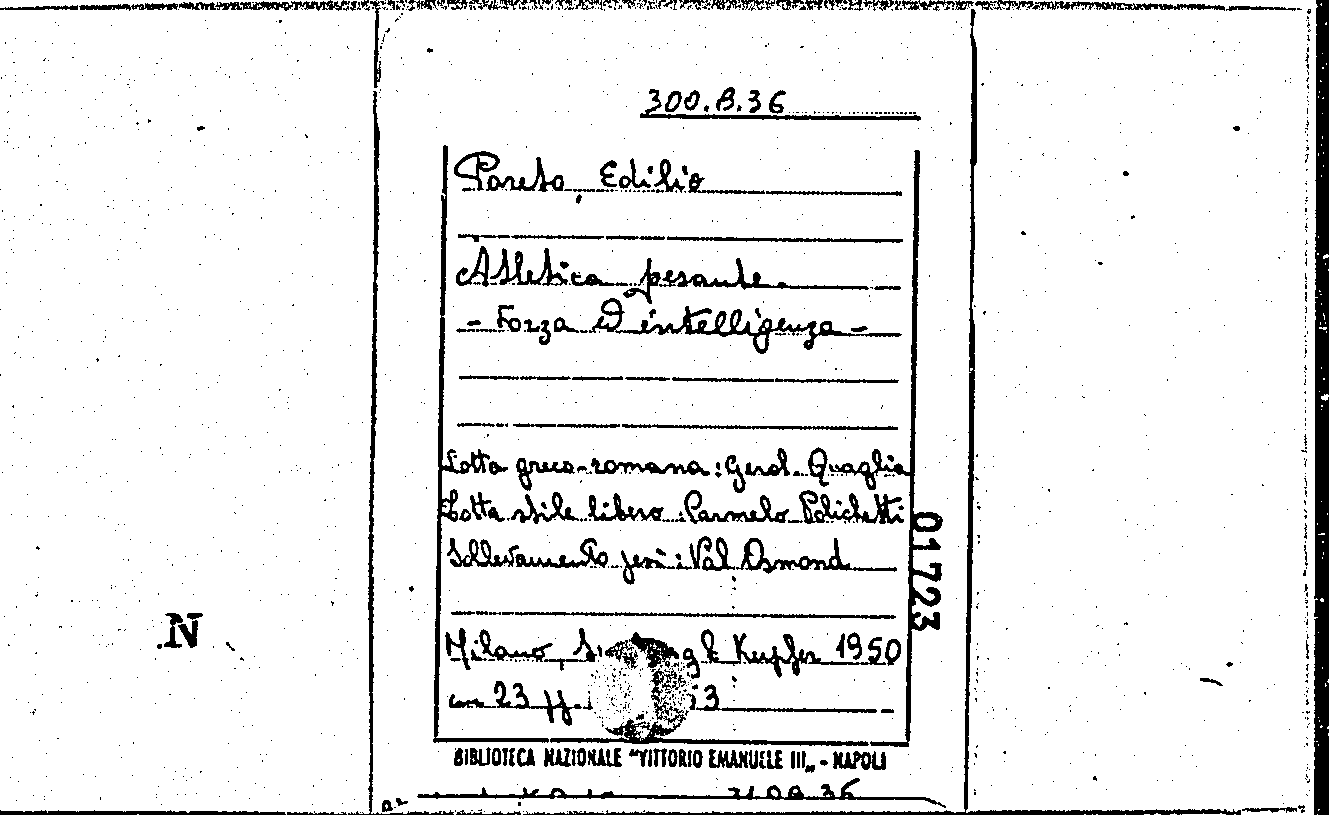 300.B.36
Pareto, Edilio
Atletica pesante.
- Forza ed intelligenza -
Lotta greco-romana: Gerol. Quaglia
Lotta stile libero: Carmelo Polichetti
Sollevamento pesi: Val Osmond
01723
N
Milano, & Kupfer 1950
23
BIBLIOTECA NAZIONALE "VITTORIO EMANUELE III„ - NAPOLI